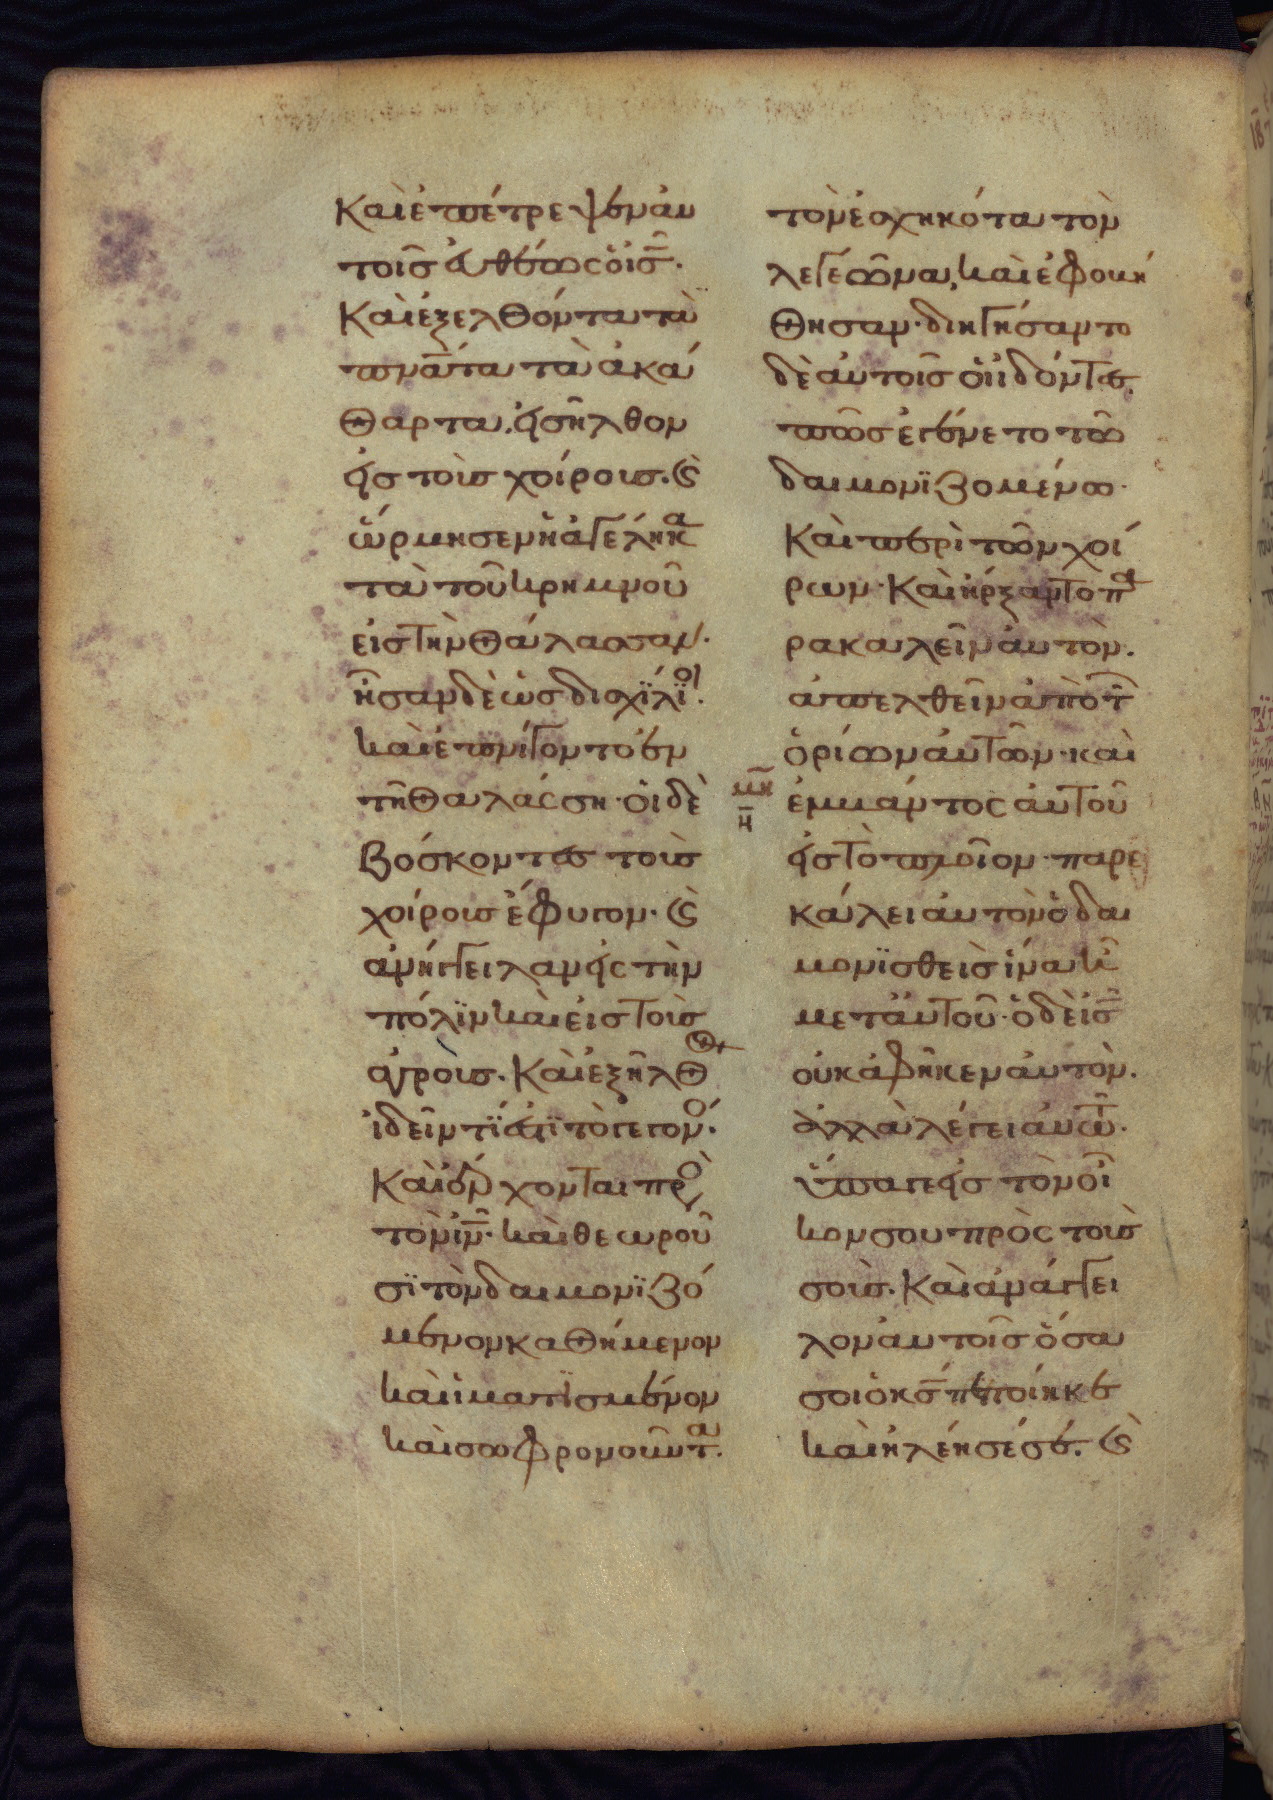 Καὶ ἐπέτρεψεν αὐ
τοῖς εὐθέως ὁ ις̅.
Καὶ ἐξελθόντα τὰ
πνα̅τα τὰ ἀκά
θαρτα. εἰσῆλθον
εἰς τοὺς χοίρους. ϗ̀
ὥρμησεν ἡ ἀγέλη κα
τὰ τοῦ κρημνοῦ
εἰς τὴν θάλασσαν.
ἦσαν δὲ ὡς δισχίλϊοι.
καὶ ἐπνίγοντο ἐν
τῇ θαλάσση· οἱ δὲ
βόσκοντες τοὺς
χοίρους ἔφυγον. ϗ̀
ἀνήγγειλαν εἰς τὴν
πόλϊν καὶ εἰς τοὺς
ἀγρούς. Καὶ ἐξῆλθον
ἰδεῖν τϊ ἐστϊ τὸ γεγονός.
Καὶ ἔρχονται πρὸς
τὸν ιν̅. καὶ θεωροῦ
σϊ τὸν δαιμονϊζό
μενον καθήμενον
καὶ ἱματϊσμένον
καὶ σωφρονοῦντα.
τὸν ἐσχηκότα τὸν
λεγεῶνα, καὶ ἐφοβή
θησαν· διηγήσαντο
δὲ αὐτοῖς οἱ ἰδόντες.
πῶς ἐγένετο τῶ
δαιμονϊζομένω·
Καὶ περὶ τῶν χοί
ρων· Καὶ ἤρξαντο πα
ρακαλεῖν αὐτὸν.
ἀπελθεῖν ἀπὸ τῶν
ὁρίων αὐτῶν· καὶ
μη̅
η̅
ἐμβάντος αὐτοῦ
εἰς τὸ πλοῖον· παρε
κάλει αὐτὸν ὁ δαι
μονϊσθεὶς ἵνα ἦ
μετ' αὐτοῦ· ὁ δὲ ις̅
οὐκ ἀφῆκεν αὐτὸν.
ἀλλὰ λέγει αὐτῶ.
ὕπαγε εἰς τὸν οἶ
κον σου πρὸς τοὺς
σούς. Καὶ ἀνάγγει
λον αὐτοῖς ὅσα
σοι ὁ κς̅ πεποίηκε
καὶ ἠλέησέ σε. ϗ̀